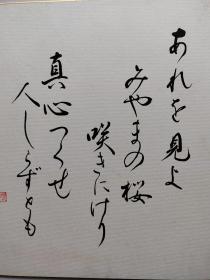 あれを見よ
みやまの桜
咲きにけり
真心つくせ
人しらずとも